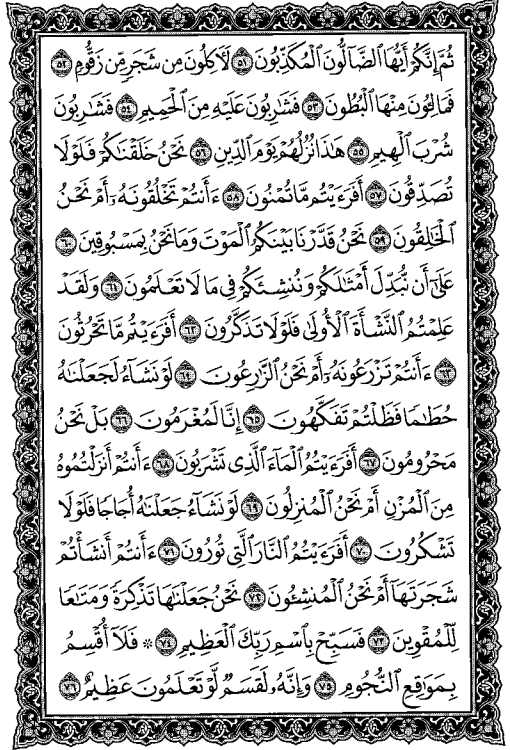 ثُمَّ إِنَّكُمْ أَيُّهَا ٱلضَّآلُّونَ ٱلْمُكَذِّبُونَ ٥١ لَءَاكِلُونَ مِن شَجَرٍ مِّن زَقُّومٍ ٥٢
فَمَالِـُٔونَ مِنْهَا ٱلْبُطُونَ ٥٣ فَشَٰرِبُونَ عَلَيْهِ مِنَ ٱلْحَمِيمِ ٥٤ فَشَٰرِبُونَ
شُرْبَ ٱلْهِيمِ ٥٥ هَٰذَا نُزُلُهُمْ يَوْمَ ٱلدِّينِ ٥٦ نَحْنُ خَلَقْنَٰكُمْ فَلَوْلَا
تُصَدِّقُونَ ٥٧ أَفَرَءَيْتُم مَّا تُمْنُونَ ٥٨ ءَأَنتُمْ تَخْلُقُونَهُۥٓ أَمْ نَحْنُ
ٱلْخَٰلِقُونَ ٥٩ نَحْنُ قَدَّرْنَا بَيْنَكُمُ ٱلْمَوْتَ وَمَا نَحْنُ بِمَسْبُوقِينَ ٦٠
عَلَىٰٓ أَن نُّبَدِّلَ أَمْثَٰلَكُمْ وَنُنشِئَكُمْ فِى مَا لَا تَعْلَمُونَ ٦١ وَلَقَدْ
عَلِمْتُمُ ٱلنَّشْأَةَ ٱلْأُولَىٰ فَلَوْلَا تَذَكَّرُونَ ٦٢ أَفَرَءَيْتُم مَّا تَحْرُثُونَ
٦٣ ءَأَنتُمْ تَزْرَعُونَهُۥٓ أَمْ نَحْنُ ٱلزَّٰرِعُونَ ٦٤ لَوْ نَشَآءُ لَجَعَلْنَٰهُ
حُطَٰمًا فَظَلْتُمْ تَفَكَّهُونَ ٦٥ إِنَّا لَمُغْرَمُونَ ٦٦ بَلْ نَحْنُ
مَحْرُومُونَ ٦٧ أَفَرَءَيْتُمُ ٱلْمَآءَ ٱلَّذِى تَشْرَبُونَ ٦٨ ءَأَنتُمْ أَنزَلْتُمُوهُ
مِنَ ٱلْمُزْنِ أَمْ نَحْنُ ٱلْمُنزِلُونَ ٦٩ لَوْ نَشَآءُ جَعَلْنَٰهُ أُجَاجًا فَلَوْلَا
تَشْكُرُونَ ٧٠ أَفَرَءَيْتُمُ ٱلنَّارَ ٱلَّتِى تُورُونَ ٧١ ءَأَنتُمْ أَنشَأْتُمْ
شَجَرَتَهَآ أَمْ نَحْنُ ٱلْمُنشِـُٔونَ ٧٢ نَحْنُ جَعَلْنَٰهَا تَذْكِرَةً وَمَتَٰعًا
لِّلْمُقْوِينَ ٧٣ فَسَبِّحْ بِٱسْمِ رَبِّكَ ٱلْعَظِيمِ ٧٤ * فَلَآ أُقْسِمُ
بِمَوَٰقِعِ ٱلنُّجُومِ ٧٥ وَإِنَّهُۥ لَقَسَمٌ لَّوْ تَعْلَمُونَ عَظِيمٌ ٧٦